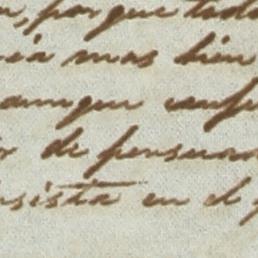 , porque toda
ia mas bien
aunque conf
r de persuad
nsista en el